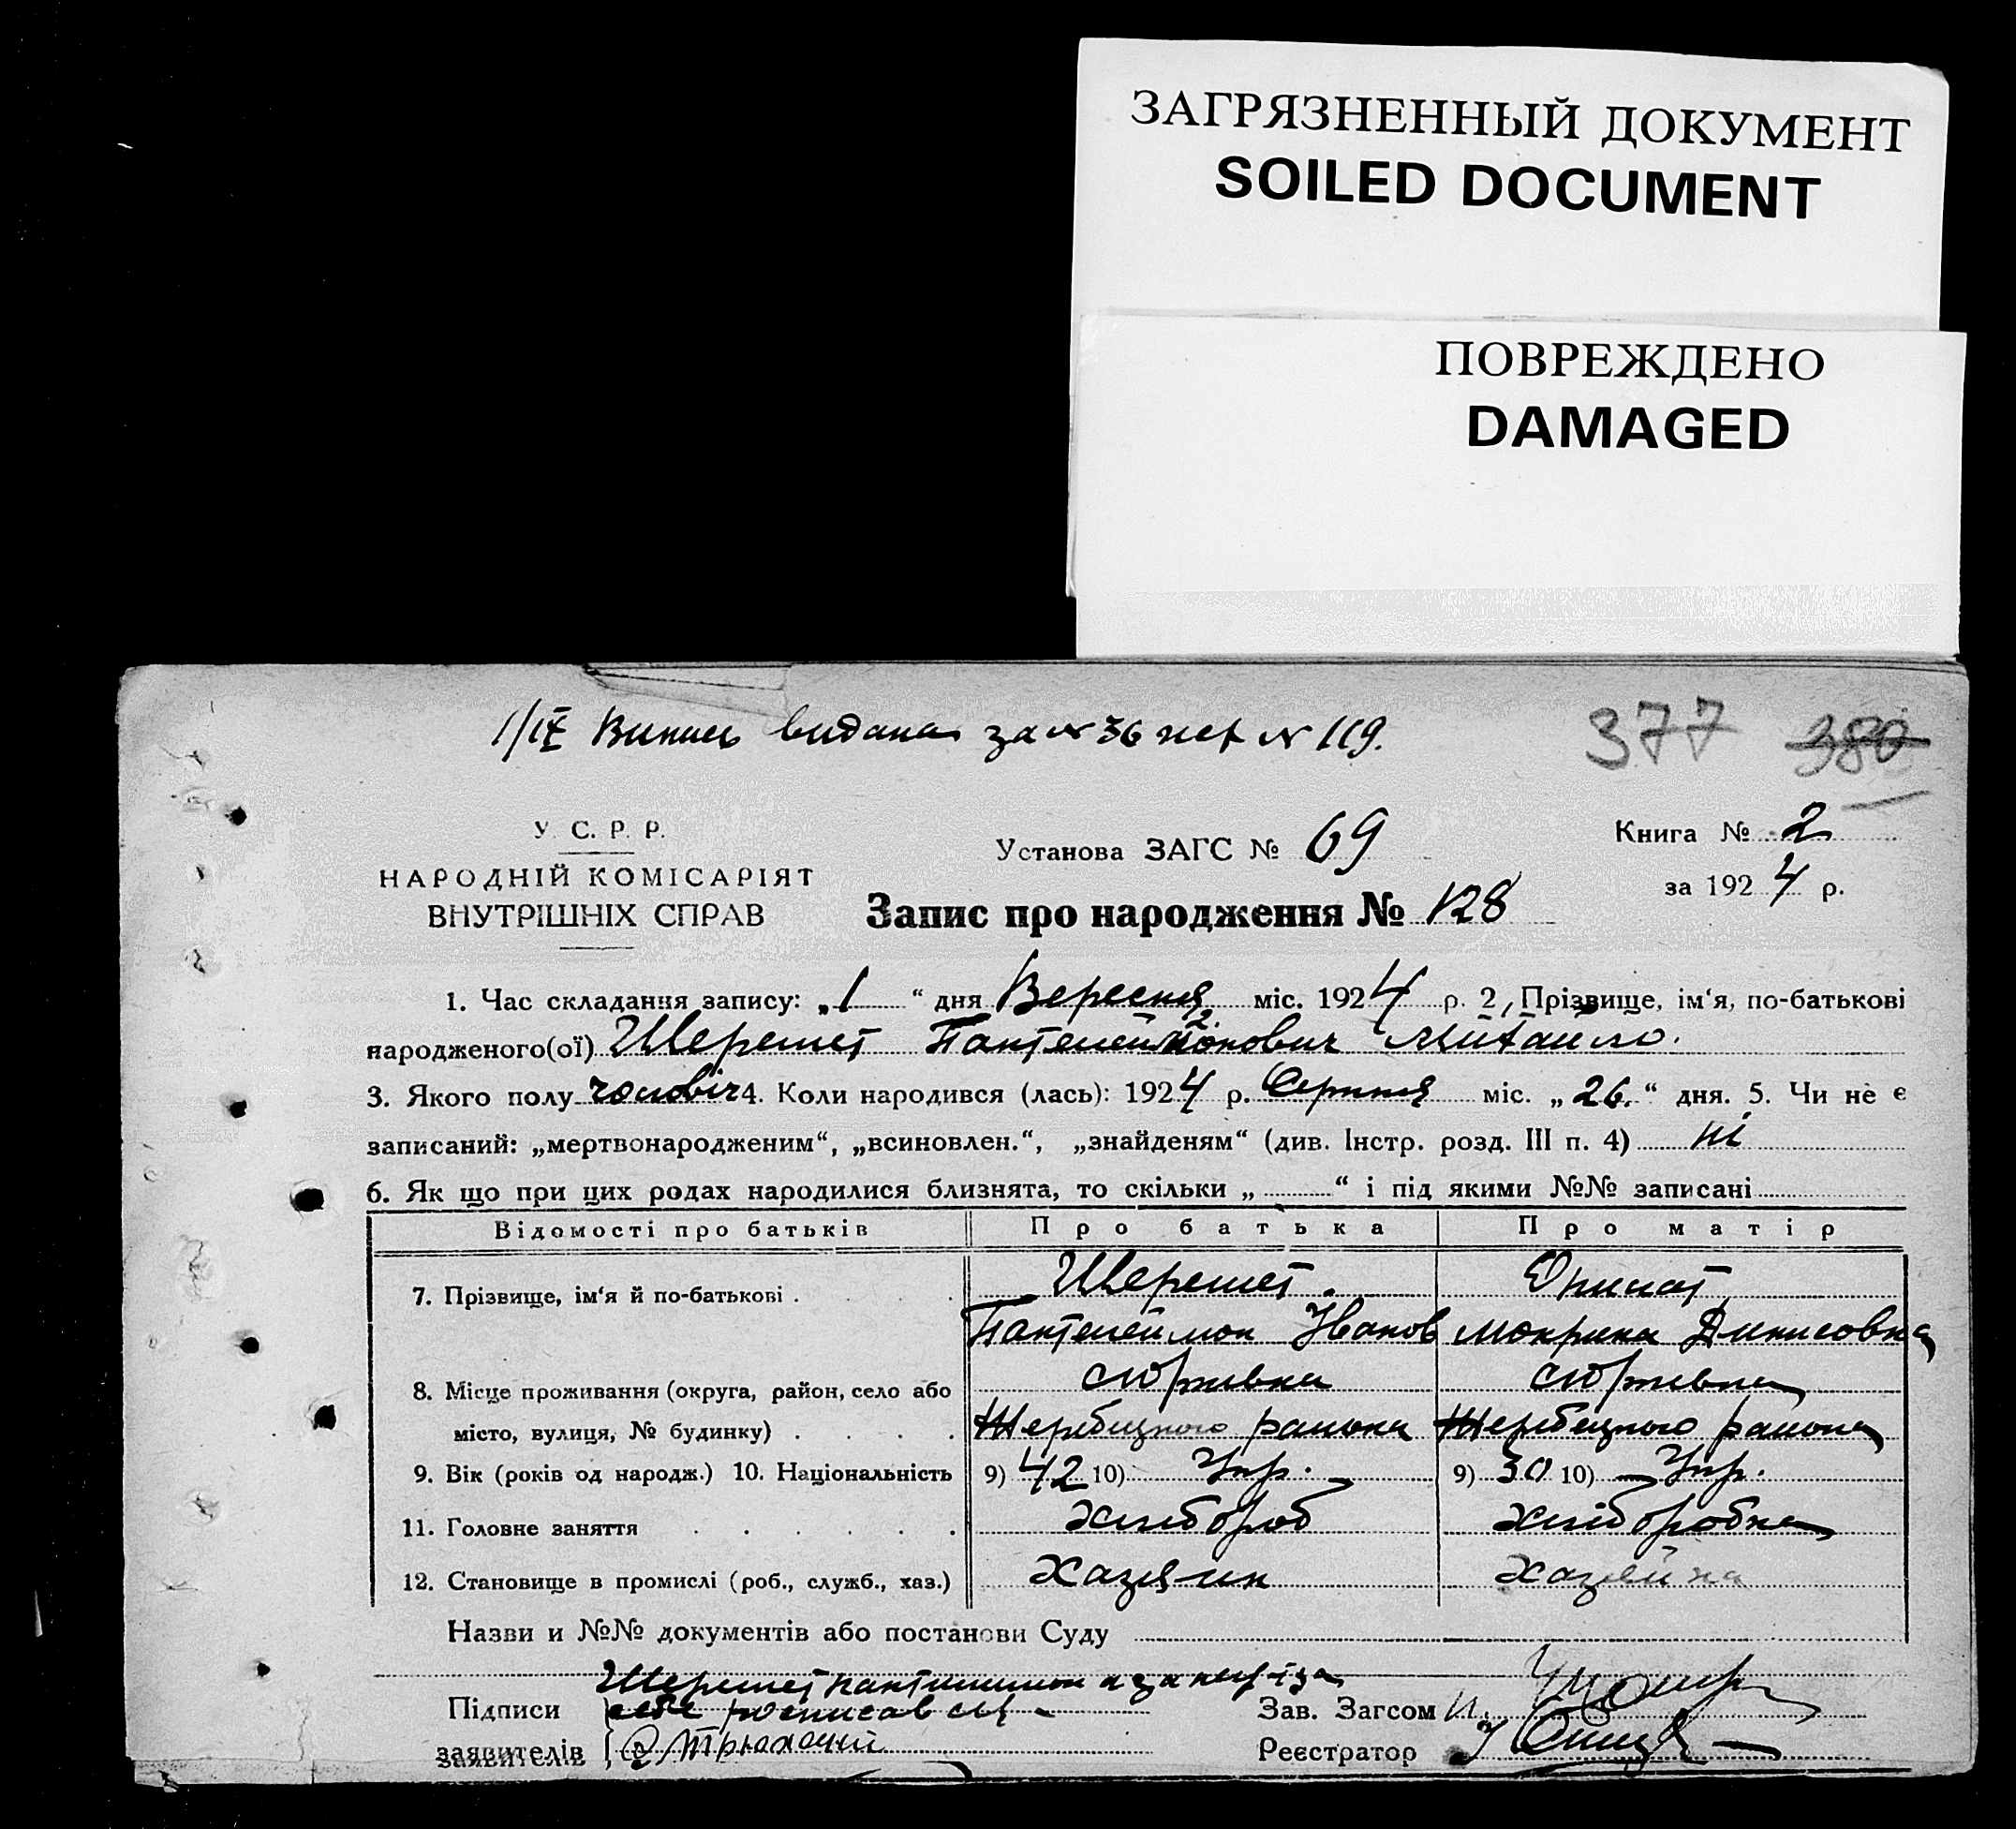 ЗАГРЯЗНЕННЫЙ ДОКУМЕНТ
SOILED DOCUMENT
ПОВРЕЖДЕНО
DAMAGED
1/IX Випись видана за № 36 № 119.
377 380
У. С. Р. Р.
НАРОДНІЙ КОМІСАРІЯТ
ВНУТРІШНІХ СПРАВ
Установа ЗАГС № 69
Запис про народження № 128
Книга № 2
за 1924 р.
1. Час складання запису: „1“ дня Вересня міс. 1924 р. 2, Прізвище, ім‘я, по-батькові
народженого(ої) Шеремет Пантелеймонович Михайло.
3. Якого полу чоловіч 4. Коли народився (лась): 1924 р. Серпня міс. „26.“ дня. 5. Чи не є
записаний: „мертвонародженим“, „всиновлен.“, „знайденям“ (див. Інстр. розд. III п. 4) ні
6. Як що при цих родах народилися близнята, то скільки „ “ і під якими №№ записані
Відомості про батьків Про батька Про матір
7. Прізвище, ім‘я й по-батькові . Шеремет.
Пантелеймон Іванов Мокрина Динисовна
8. Місце проживання (округа, район, село або
місто, вулиця, № будинку) . . . . района района
9. Вік (років од народж.) 10. Національність 9) 42 10) Укр. 9) 30 10) Укр.
11. Головне заняття . . . . . . хлібороб хліборобка
12. Становище в промислі (роб., служб., хаз.) Хазяин Хазяйка
Назви и №№ документів або постанови Суду
Шеремет
Підписи себе росписався Зав. Загсом
заявителів Реєстратор